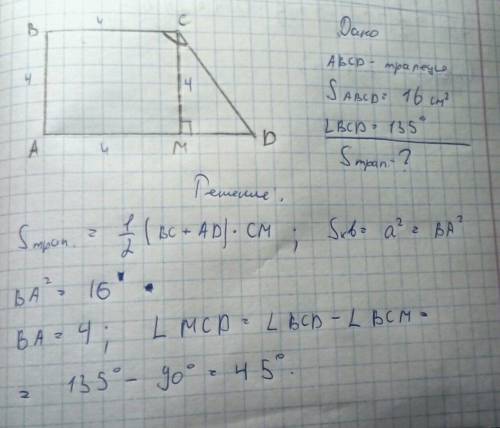 B 4 C
4 4
A 4 M D
Дано
ABCD - трапеция
S ABCD = 16 см²
∠BCD = 135°
Sтрап. - ?
Решение.
Sтрап. = 1/2 (BC + AD) · CM ; Sкв = a² = BA²
BA² = 16
BA = 4 ; ∠ MCD = ∠ BCD - ∠ BCM =
= 135° - 90° = 45°.